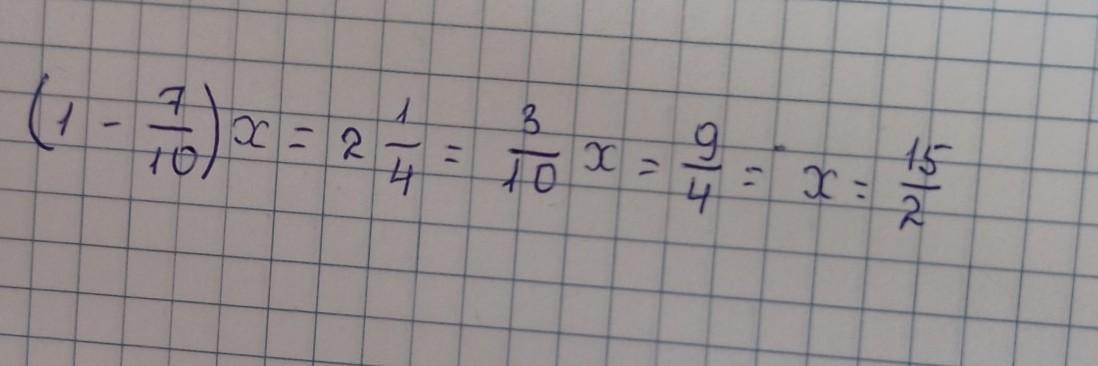 (1 - 7/10) x = 2 1/4 = 3/10 x = 9/4 = x = 15/2